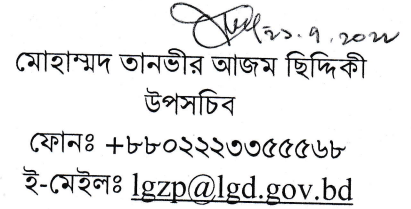 ২১.৭.২০২২
মোহাম্মদ তানভীর আজম ছিদ্দিকী
উপসচিব
ফোনঃ +৮৮০২২২৩৩৫৫৫৬৮
ই-মেইলঃ lgzp@lgd.gov.bd